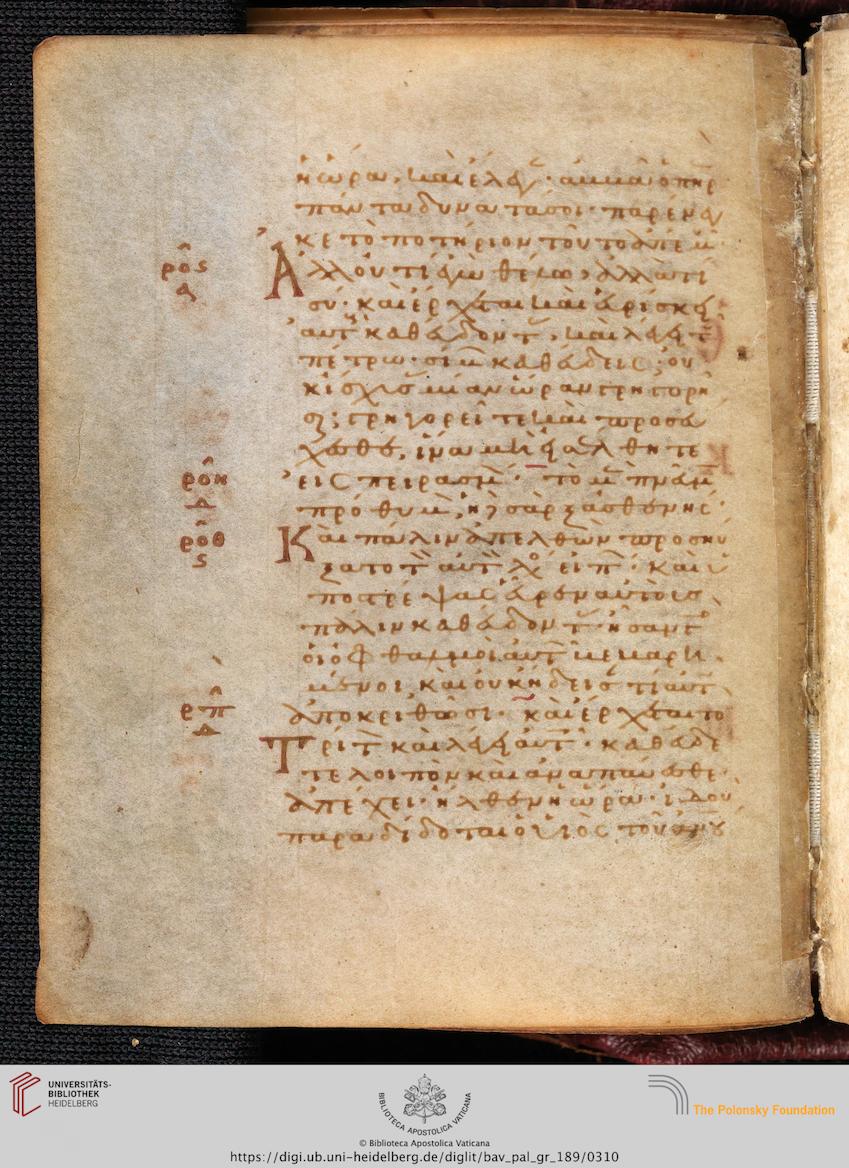 ἡ ὥρα, καὶ ἔλεγ· ἀββᾶ ὁ πηρ
πάντα δυνατά σοι· παρένεγ
κε τὸ ποτήριον τοῦτο ἀπ ἐμ·
ρος Ἀλλ οὐ τί ἐγὼ θέλω, ἀλλὰ τί
α σύ· καὶ ἔρχεται καὶ εὑρίσκει
αὐτ καθεύδοντ, καὶ λέγει τ
πέτρω· σίμ καθεύδεις; οὐ
κ ἴσχυσ μίαν ὥραν γρηγορῆ
σαι; γρηγορεῖτε καὶ προσεύ
χεσθε, ἵνα μὴ εἰσέλθητε
ροη εἰς πειρασμ· τὸ μ πνα μ
δ πρόθυμ, ἡ δὲ σὰρξ ἀσθενής·
ροθ Καὶ πάλιν ἀπελθὼν προσηύ
ς ξατο τ αὐτ λο εἰπ· καὶ ὑ
ποστρέψας εὗρεν αὐτοὺς
πάλιν καθεύδοντ· ἦσαν γ
οἱ ὀφθαλμοὶ αὐτ βεβαρη
μένοι, καὶ οὐκ ᾔδεισ τί αὐτ
ρπ ἀποκριθῶσι· καὶ ἔρχεται το
δ Τρίτ καὶ λέγει αὐτ· καθεύδε
τε λοιπὸν καὶ ἀναπαύεσθε·
ἀπέχει· ἦλθεν ἡ ὥρα· ἰδοὺ
παραδίδοται ὁ υἱὸς τοῦ ἀνου
UNIVERSITÄTS-
BIBLIOTHEK
HEIDELBERG
BIBLIOTECA APOSTOLICA VATICANA
The Polonsky Foundation
© Biblioteca Apostolica Vaticana
https://digi.ub.uni-heidelberg.de/diglit/bav_pal_gr_189/0310